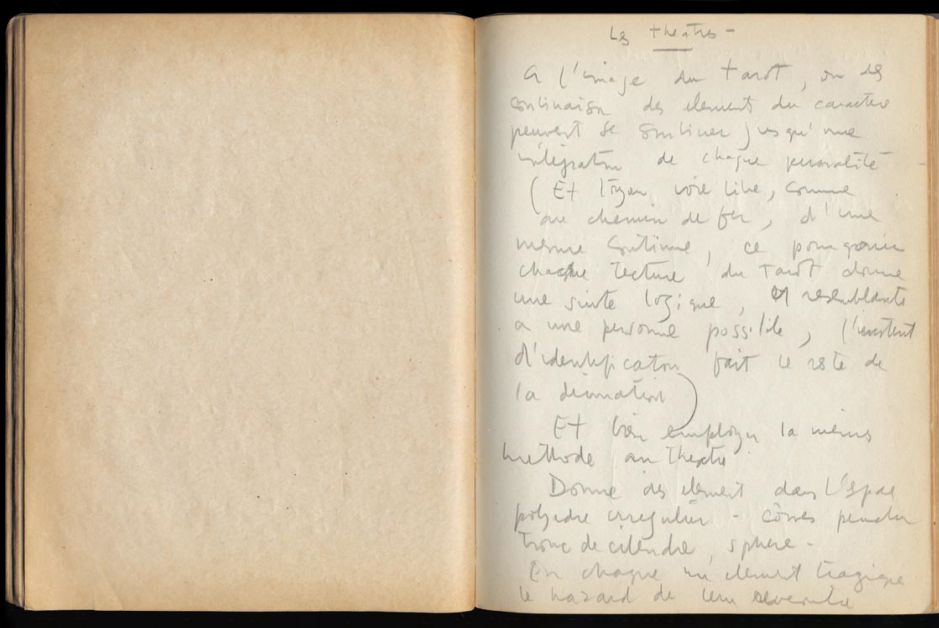 Les theatres -
A l'image du tarot, ou des
combinaison des element du caractere
peuvent se combiner jusqu'une
integration de chaque
(Et voie libre, comme
au chemin de fer, d'une
meme ce pourquoi
chaque lecture du tarot donne
une suite logique, et ressemblante
a une personne possible, l'instant
d'identification fait le reste de
la divination)
Et bien employer la meme
methode au theatre
Donne des element dans l'espace
polyedre irregulier - cônes
tronc de cilendre, sphere -
En chaque un element tragique
le hazard de leur